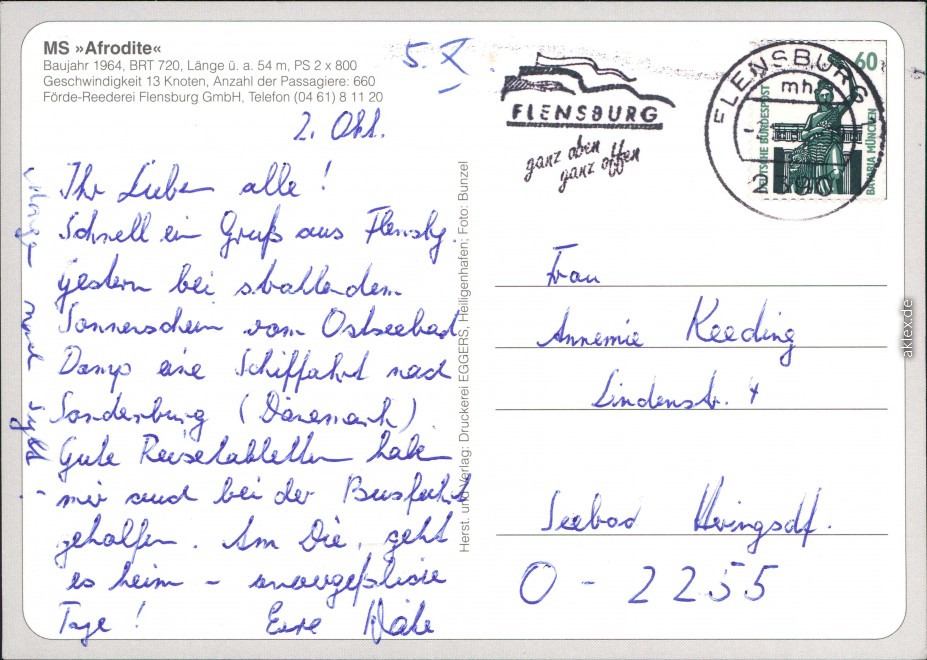 MS »Afrodite«
Baujahr 1964, BRT 720, Länge ü. a. 54 m, PS 2 x 800
Geschwindigkeit 13 Knoten, Anzahl der Passagiere: 660
Förde-Reederei Flensburg GmbH, Telefon (04 61) 8 11 20
5. X.
2. Okt.
Ihr Lieben alle!
Schnell ein Gruß aus Flensbg.
Gestern bei strahlendem
Sonnenschein vom Ostseebad
Damp eine Schiffahrt nach
Sonderburg (Dänemark).
Gute Reisetabletten haben
mir auch bei der Busfahrt
geholfen. Am Die. geht
es heim - unvergeßliche
Tage! Eure
Morgen nach Sylt
Herst. und Verlag: Druckerei EGGERS, Heiligenhafen; Foto: Bunzel
FLENSBURG
ganz oben
ganz offen
FLENSBURG
mh
60
DEUTSCHE BUNDESPOST
BAVARIA MÜNCHEN
Frau
Annemie Reeding
Lindenstr. 4
Seebad Heringsdf.
O-2255
aklex.de